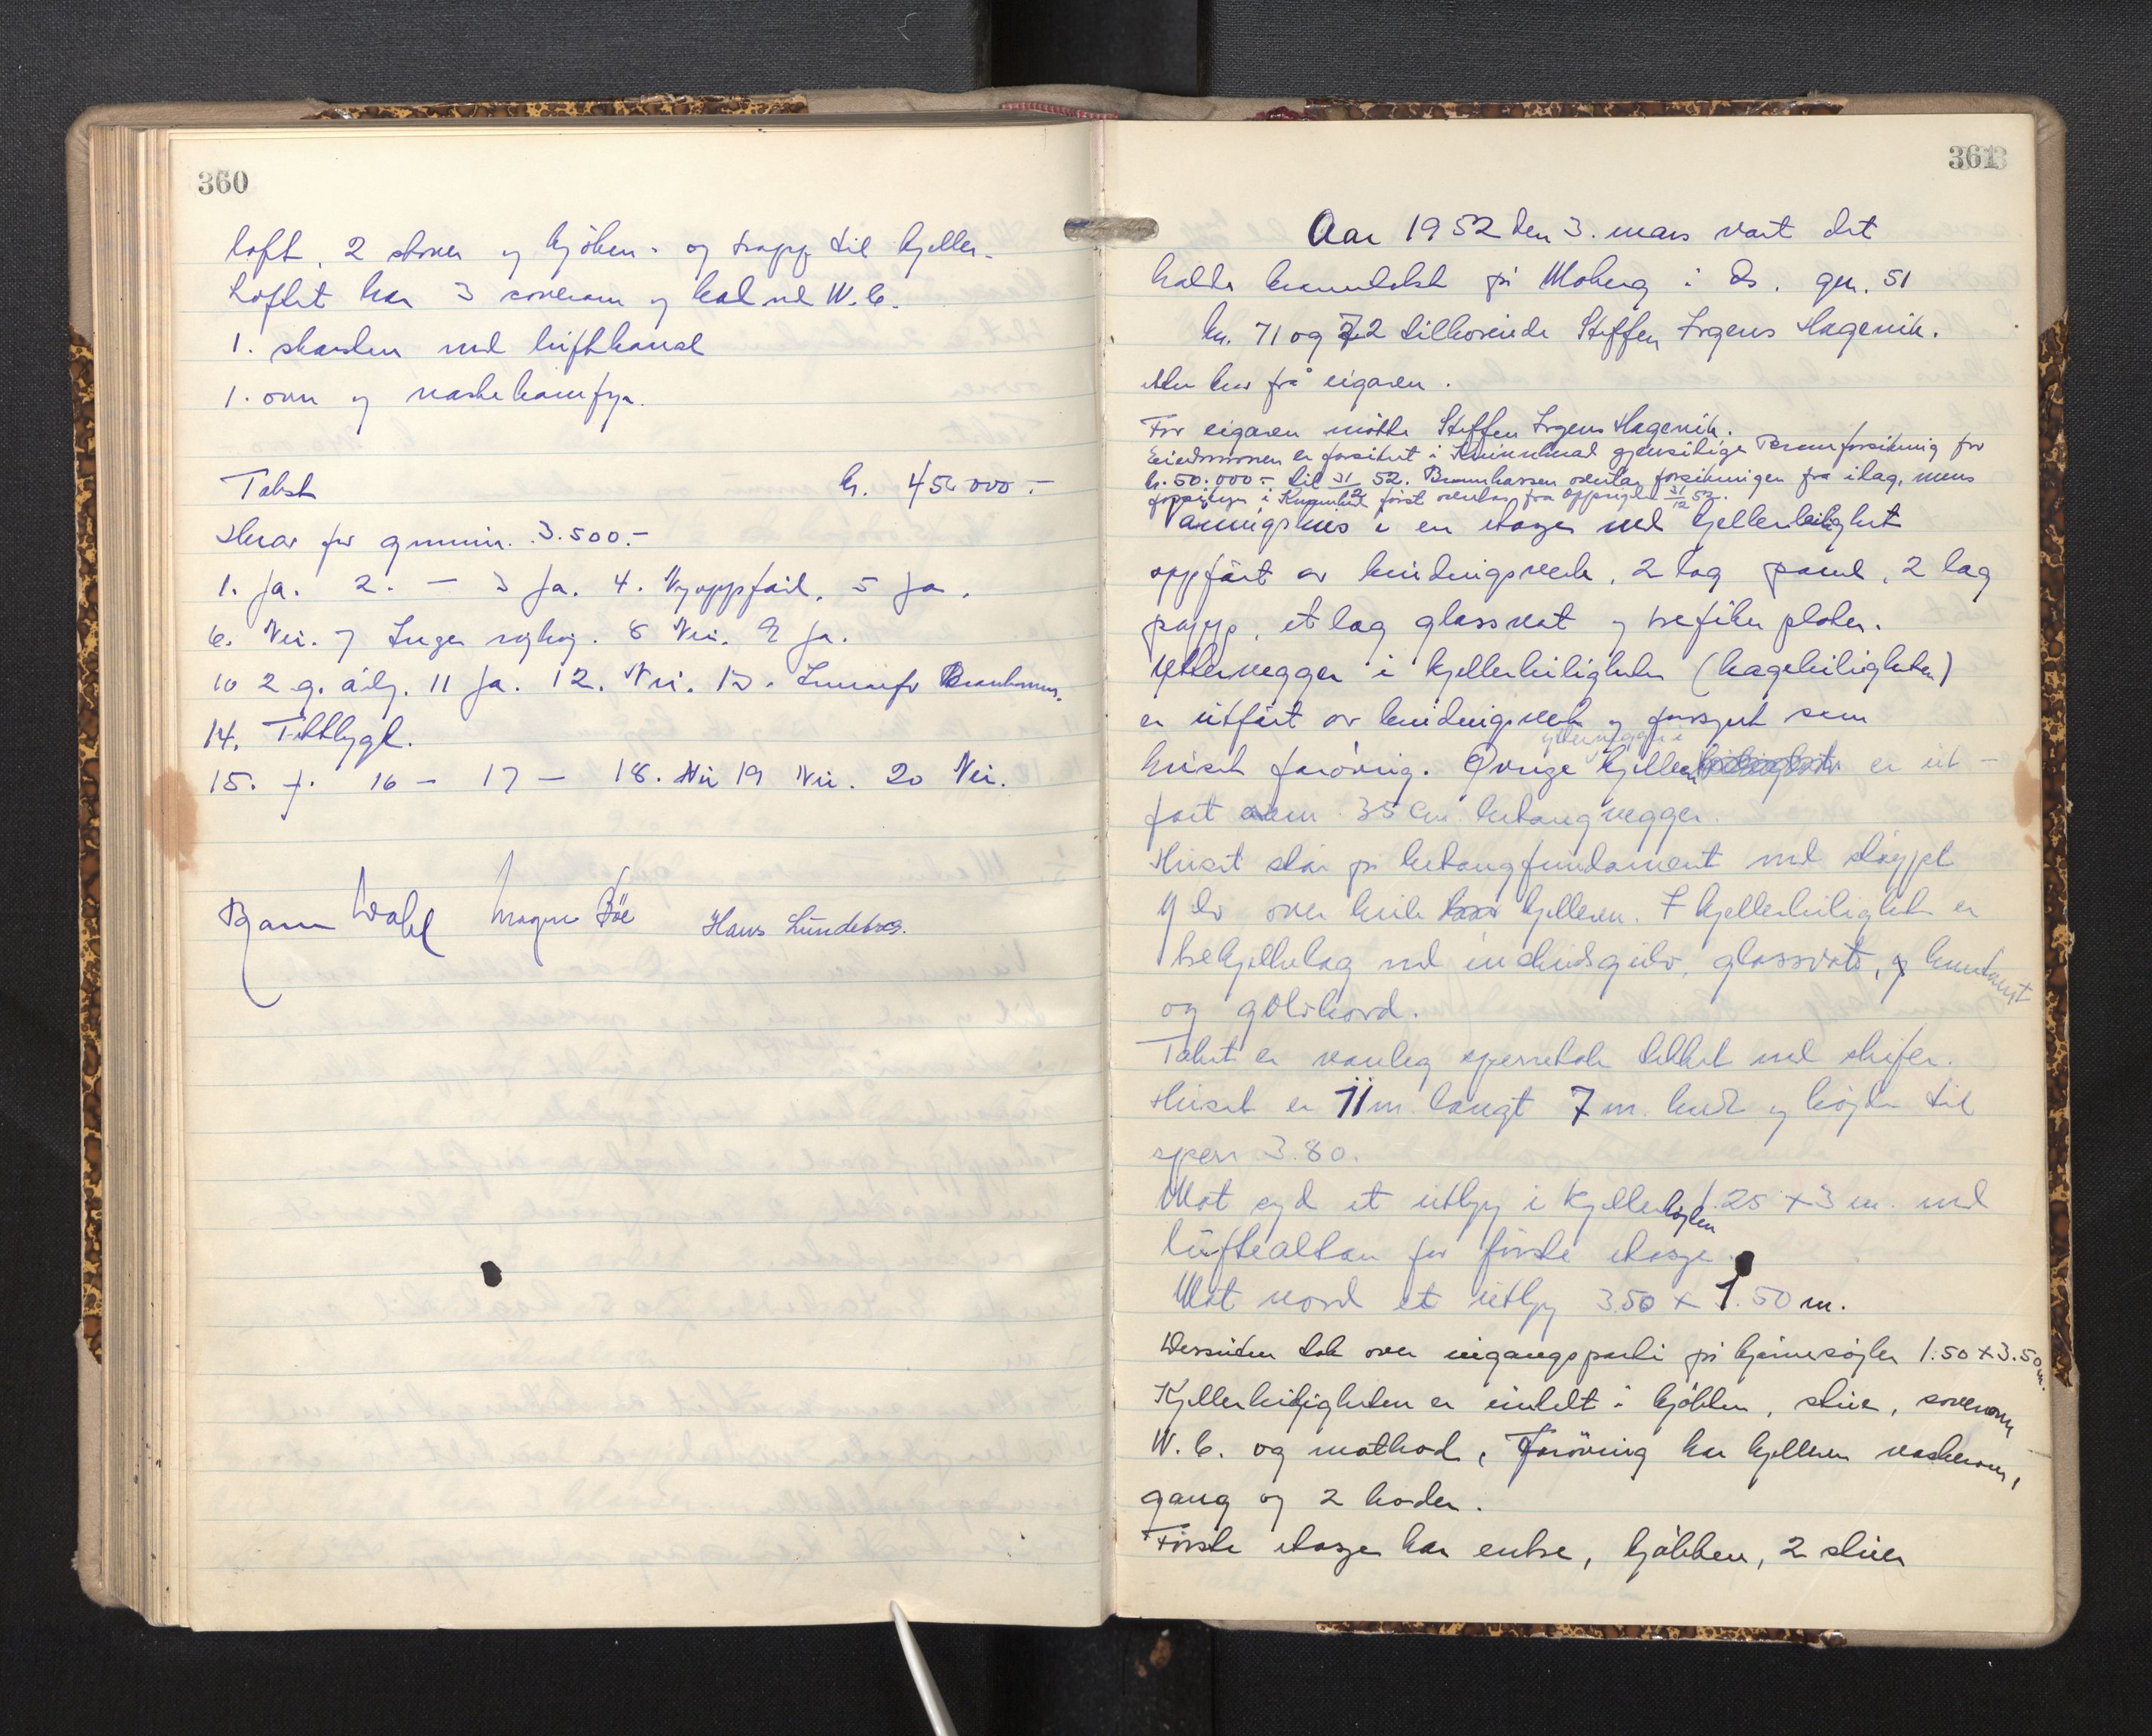 360
loft, 2 stover og kjöken. og trapp til kjeller.
Loftet har 3 soverom og bad med W.C.
1. skorstein med luftkanal
1. ovn og vaskekomfyr.
Takst kr. 45.000.-
Svar for grunnm. 3.500.-
1. Ja. 2. — 3 Ja. 4. Nyoppfört. 5 Ja.
6. Nei. 7 Ingen 8 Nei. 9 Ja.
10 2 g. årlg. 11 Ja. 12. Nei. 13. Innanfor
14. Tettbygt.
15. 16 — 17 — 18. Nei 19 Nei. 20 Nei.
Bjarne Dahl Magnus Böe Hans Lundetræ.
361
Aar 1952 den 3. mars vart det
halde branntakst på Moberg i Os. gnr. 51
bn. 71 og 72 tilhörende Steffen Irgens Hagevik.
frå eigaren.
For eigaren mötte Steffen Irgens Hagevik.
Eiendommen er forsikret i gjensidige Brannforsikring for
kr. 50.000.- til 31/12 52. Brannkassen overtar forsikringen fra idag, mens
i först overtar fra 31/12 52.
Vaaningshus i en etasje med kjellerleilighet
oppfört av bindingsverk, 2 lag panel, 2 lag
papp, et lag glassvat og trefiber plater.
Yttervegger i kjellerleiligheten (hageleiligheten)
er utfört av bindingsverk og forsynt som
huset forövrig. Övrige yttervegger i kjelleren er ut-
fört som 35 cm. betongvegger.
Huset står på betongfundament med stöypt
golv over hele kjelleren. I kjellerleilighet er
trebjelkelag med stubbgulv, glassvatt,
og golvbord.
Taket er vanleg sperretak tekket med skifer.
Huset er 11 m. langt 7 m. bredt og höyde til
sperr 3.80.
Mot syd et utbygg i kjellerhöyden 1.25 x 3 m. med
luftealtan for förste etasje.
Mot nord et utbygg 3.50 x 1.50 m.
Dessuten tak over inngangsparti på hjörnesöyler 1.50 x 3.50 m.
Kjellerleiligheten er inndelt i kjökken, stue, soverom
W.C. og matbod. Forövrig har kjelleren vaskerom,
gang og 2 boder.
Förste etasje har entre, kjökken, 2 stuer